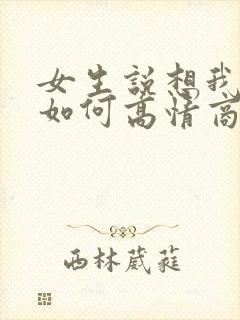 女生说想我
如何高情商
西林葳蕤